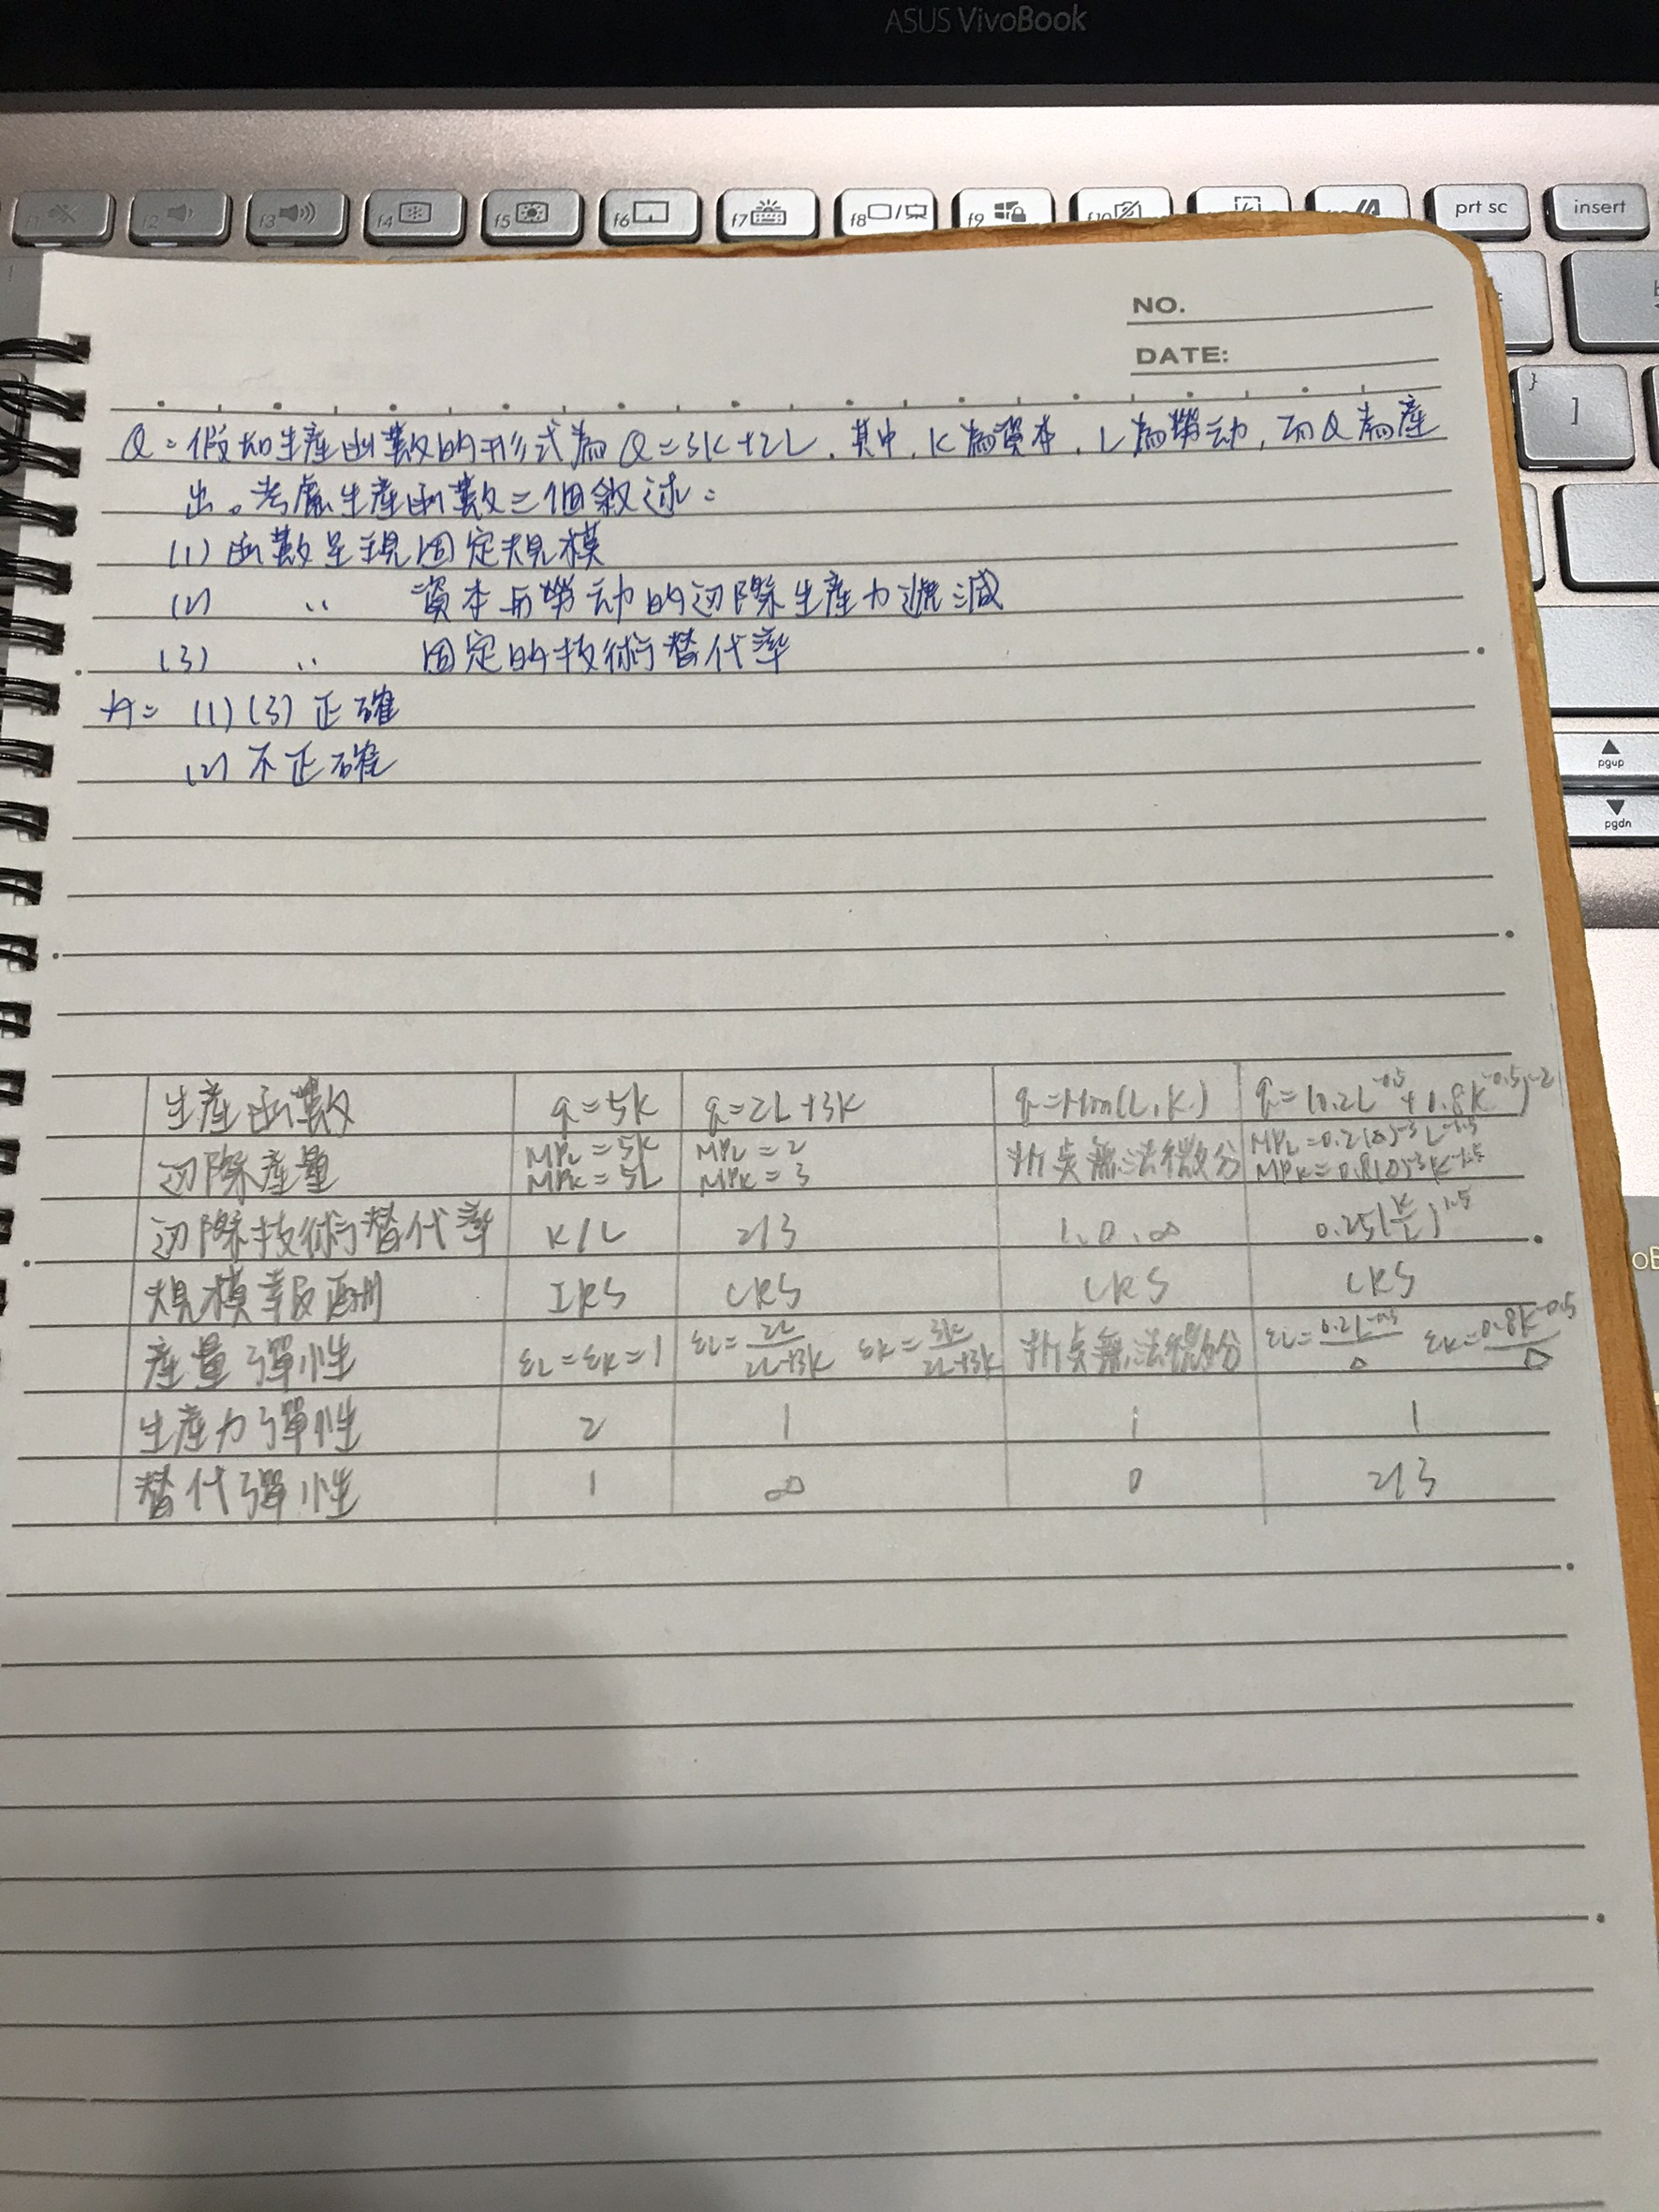 ASUS VivoBook
f1
f2
f3
f4
f5
f6
f7
f8
f9
f10
prt sc
insert
NO.
DATE:
}
]
Q=假如生產函數的形式為 Q=3K+2L，其中，K為資本，L為勞动，而Q為產
出。考慮生產函數三個敘述：
(1) 函數呈現固定規模
(2) 〃 資本與勞动的边際生產力遞減
(3) 〃 固定的技術替代率
A= (1)(3) 正確
(2) 不正確
pgup
pgdn
生產函數 q=5K q=2L+3K q=Min(L,K) q=(0.2L^-0.5+0.8K^-0.5)^-2
边際產量 MPL=5K MPK=5L MPL=2 MPK=3 折点無法微分 MPL=0.2(Δ)^-3 L^-1.5 MPK=0.8(Δ)^-3 K^-1.5
边際技術替代率 K/L 2/3 1.0.∞ 0.25(K/L)^1.5
規模報酬 IRS CRS CRS CRS
產量彈性 εL=εK=1 εL=2L/2L+3K εK=3K/2L+3K 折点無法微分 εL=0.2L^-0.5/Δ εK=0.8K^-0.5/Δ
生產力彈性 2 1 1 1
替代彈性 1 ∞ 0 2/3